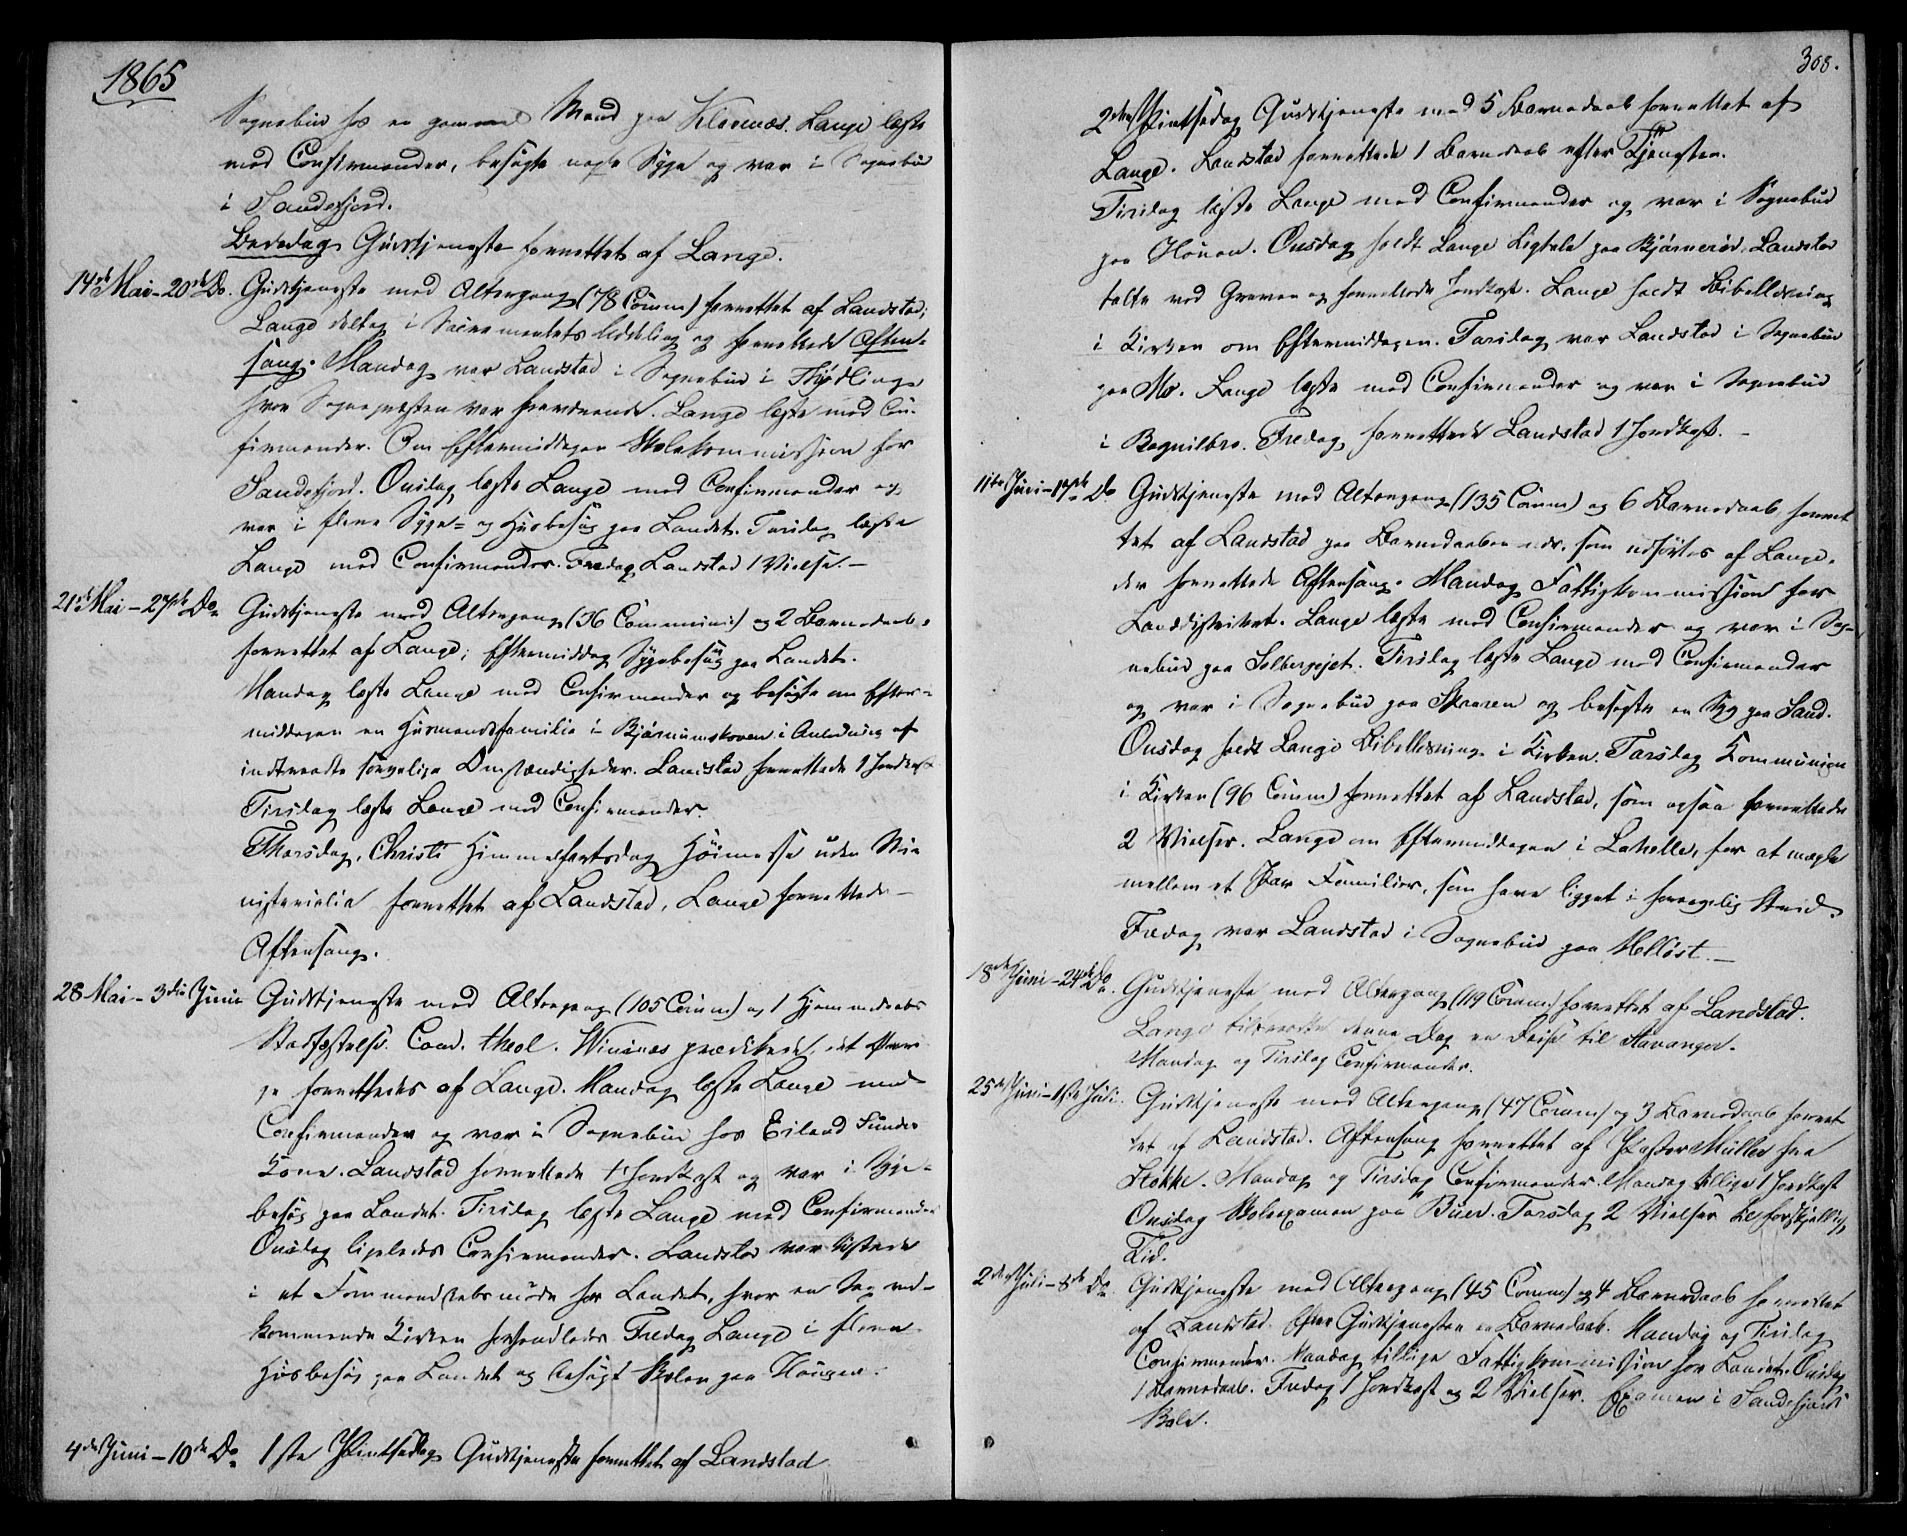 1865
Sognebud hos en gammel Mand paa Klavenæs. Lange læste
med Confirmander, besøgte nogle Syge og var i Sognebud
i Sandefjord.
Bededag Gudstjeneste forrettet af Lange.
14de Mai – 20de Do. Gudstjeneste med Altergang (78 Comm) forrettet af Landstad;
Lange deltog i Sacramentets Uddeling og forrettede Aften-
sang. Mandag var Landstad i Sognebud i Thjødling
hvor Sognepræsten var fraværende. Lange læste med Con-
firmander. Om Eftermiddagen Skolekommission for
Sandefjord. Onsdag læste Lange med Confirmander og
var i flere Syge- og Husbesøg paa Landet. Torsdag læste
Lange med Confirmander. Fredag Landstad 1 Vielse. –
21de Mai – 27de Do. Gudstjeneste med Altergang (36 Communi:) og 2 Barnedaab,
forrettet af Lange; Eftermiddag Sygebesøg paa Landet.
Mandag læste Lange med Confirmander og besøgte om Efter-
middagen en Husmandsfamilie i Bjørnumskoven i Anledning af
indtraadte sørgelige Omstændigheder. Landstad forrettede 1 Jordkast
Tirsdag læste Lange med Confirmander.
Thorsdag, Christi Himmelfartsdag Høimesse uden Mi-
nisterialia forrettet af Landstad, Lange forrettede
Aftensang.
28 Mai – 3die Juni Gudstjeneste med Altergang (105 Comm) og 1 Hjemmedaabs
Stadfæstelse. Cand. theol. Winsnes prædikede, det Øvri-
ge forrettedes af Lange. Mandag læste Lange med
Confirmander og var i Sognebud hos Eiland Sundes
Kone. Landstad forrettede 1 Jordkast og var i Syge-
besøg paa Landet. Tirsdag læste Lange med Confirmander
Onsdag ligeledes Confirmander. Landstad var tilstede
i et Formandskabsmøde for Landet, hvor en Sag ved-
kommende Kirken forhandledes. Fredag Lange i flere
Husbesøg paa Landet og besøgt Skolen paa Haugen.
4de Juni – 10de Do. 1ste Pintsedag Gudstjeneste forrettet af Landstad
308.
2den Pintsedag Gudstjeneste med 5 Barnedaab forrettet af
Lange. Landstad forrettede 1 Barnedaab efter Tjenesten.
Tirsdag læste Lange med Confirmander og var i Sognebud
paa Houen. Onsdag holdt Lange Ligtale paa Bjørnerød. Landstad
talte ved Graven og forrettede Jordkast. Lange holdt Bibellæsning
i Kirken om Eftermiddagen. Torsdag var Landstad i Sognebud
paa Mo. Lange læste med Confirmander og var i Sognebud
i Bognilbro. Fredag forrettede Landstad 1 Jordkast. –
11te Juni – 17de Do Gudstjeneste med Altergang (135 Comm) og 6 Barnedaab, forret
tet af Landstad paa Barnedaaben nær, som udførtes af Lange,
der forrettede Aftensang. Mandag Fattigkommission for
Landdistriktet. Lange læste med Confirmander og var i Sog-
nebud paa Solbergejet. Tirsdag læste Lange med Confirmander
og var i Sognebud paa Skraven og besøgte en Syg paa Sand.
Onsdag holdt Lange Bibellæsning i Kirken. Torsdag Kommunion
i Kirken (96 Comm) forrettet af Landstad, som ogsaa forrettede
2 Vielser. Lange om Eftermiddagen i Lahelle, for at mægle
mellem et Par Familier, som have ligget i forargelig Strid.
Fredag var Landstad i Sognebud paa Melløst. –
18de Juni – 24de Do. Gudstjeneste med Altergang (119 Comm.) forrettet af Landstad.
Lange tiltraadte denne Dag en Reise til Stavanger.
Mandag og Tirsdag Confirmander.
25de Juni – 1ste Juli. Gudstjeneste med Altergang (47 Comm) og 3 Barnedaab forret
tet af Landstad. Aftensang forrettet af Pastor Müller fra
Stokke. Mandag og Tirsdag Confirmander. Mandag tillige 1 Jordkast
Onsdag Skoleexamen paa Buer. Torsdag 2 Vielser til forskjellig
Tid.
2den Juli – 8de Do. Gudstjeneste med Altergang (45 Comm) og 4 Barnedaab forrettet
af Landstad. Efter Gudstjenesten en Barnedaab. Mandag og Tirsdag
Confirmander. Mandag tillige Fattigkommission for Landet. Onsdag
1 Barnedaab. Fredag 1 Jordkast og 2 Vielser. Examen i Sandefjords
Skole.